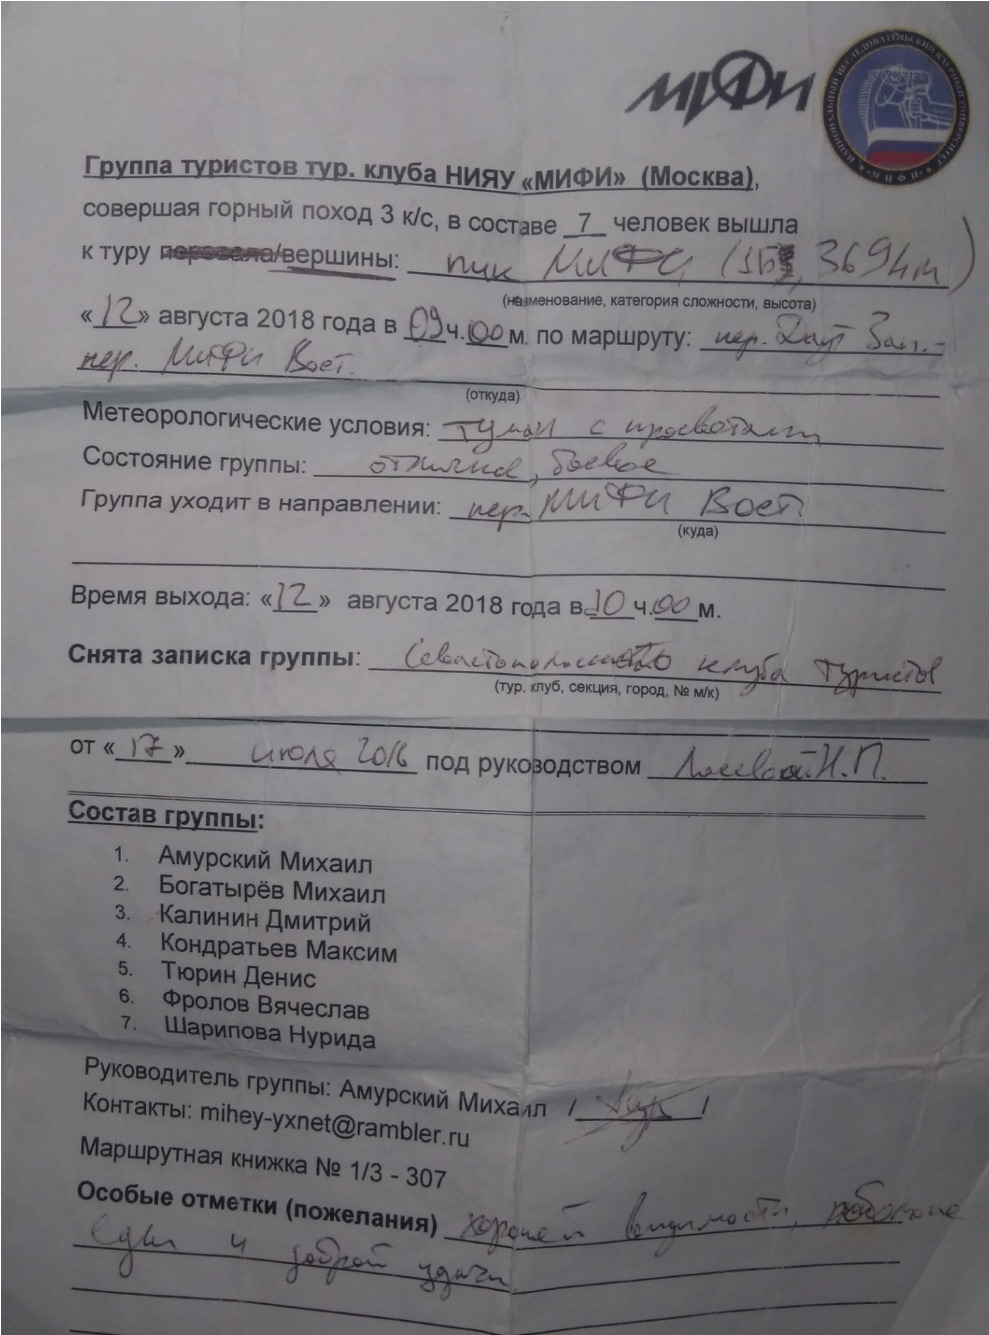 МИФИ
НАЦИОНАЛЬНЫЙ ИССЛЕДОВАТЕЛЬСКИЙ ЯДЕРНЫЙ УНИВЕРСИТЕТ «МИФИ»
Группа туристов тур. клуба НИЯУ «МИФИ» (Москва),
совершая горный поход 3 к/с, в составе 7 человек вышла
к туру перевала/вершины: пик МИФИ (1Б, 3694м)
(наименование, категория сложности, высота)
«12» августа 2018 года в 09ч.00м. по маршруту: пер. Даут Зап. -
пер. МИФИ Вост.
(откуда)
Метеорологические условия: туман с просветами
Состояние группы: отличное, боевое
Группа уходит в направлении: пер. МИФИ Вост
(куда)
Время выхода: «12» августа 2018 года в 10 ч.00м.
Снята записка группы: Севастопольского клуба туристов
(тур. клуб, секция, город, № м/к)
от «17» июля 2016 под руководством Н.П.
Состав группы:
1. Амурский Михаил
2. Богатырёв Михаил
3. Калинин Дмитрий
4. Кондратьев Максим
5. Тюрин Денис
6. Фролов Вячеслав
7. Шарипова Нурида
Руководитель группы: Амурский Михаил / /
Контакты: mihey-yxnet@rambler.ru
Маршрутная книжка № 1/3 - 307
Особые отметки (пожелания) хорошей видимости, побольше
еды и доброй удачи